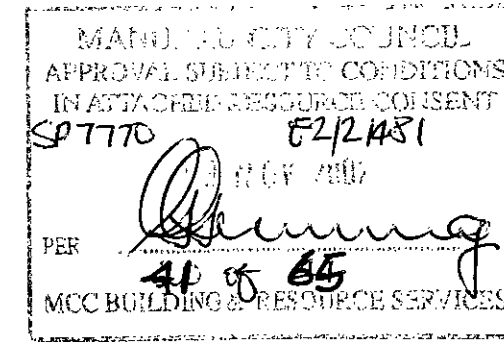 CITY COUNCIL
APPROVAL SUBJECT TO CONDITIONS
IN ATTACHED RESOURCE CONSENT
SP7770
NOV
PER
41 of 65
MCC BUILDING & RESOURCE SERVICES